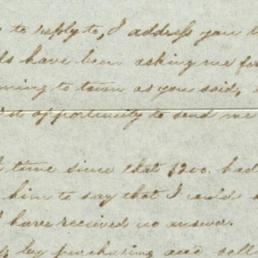 to reply to, I address you
have been asking me for
coming to town as you said,
opportunity to send me
time since that $200. had
him to say that I could
I have recieved no answer.
by purchasing and